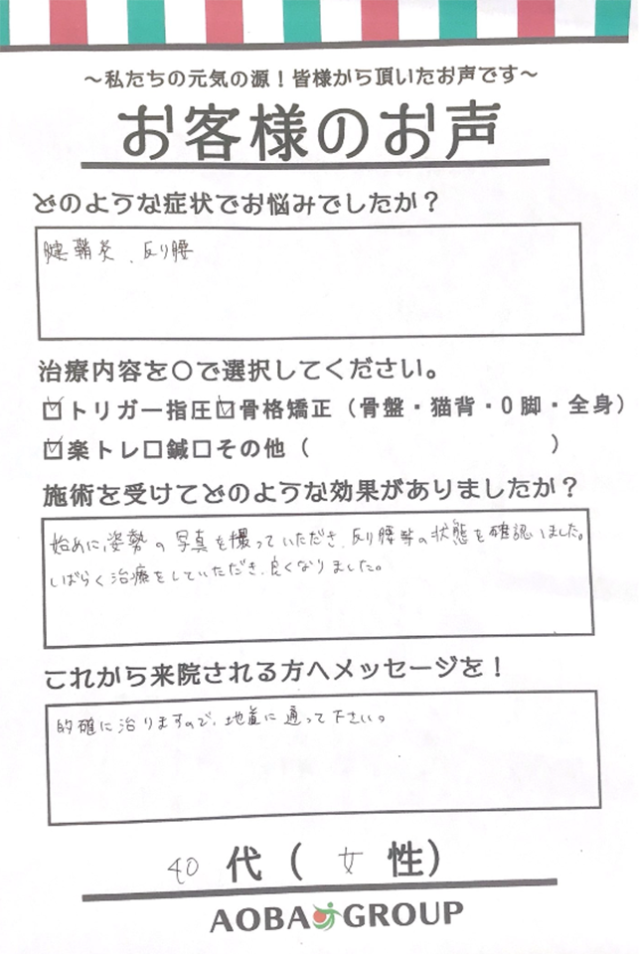 ～私たちの元気の源！皆様から頂いたお声です～
お客様のお声
どのような症状でお悩みでしたか？
腱鞘炎、反り腰
治療内容を〇で選択してください。
☑トリガー指圧☑骨格矯正（骨盤・猫背・O脚・全身）
☑楽トレ☐鍼☐その他（　　　　　　　　　　）
施術を受けてどのような効果がありましたか？
始めに、姿勢の写真を撮っていただき、反り腰等の状態を確認しました。
しばらく治療をしていただき、良くなりました。
これから来院される方へメッセージを！
的確に治りますので、地道に通って下さい。
40代（女性）
AOBA GROUP